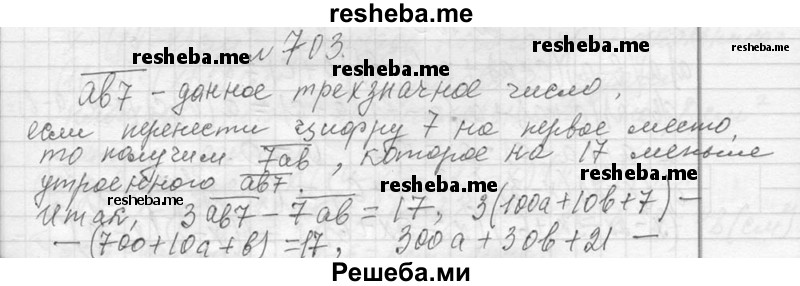 resheba.me
№ 703.
resheba.me resheba.me resheba.me
ab7 - данное трехзначное число,
если перенести цифру 7 на первое место,
то получим 7ab, которое на 17 меньше
resheba.me resheba.me resheba.me
утроенного ab7.
resheba.me resheba.me
Итак, 3ab7 - 7ab = 17, 3(100a+10b+7) -
- (700+10a+b) = 17, 300a+30b+21 -
Решеба.ми